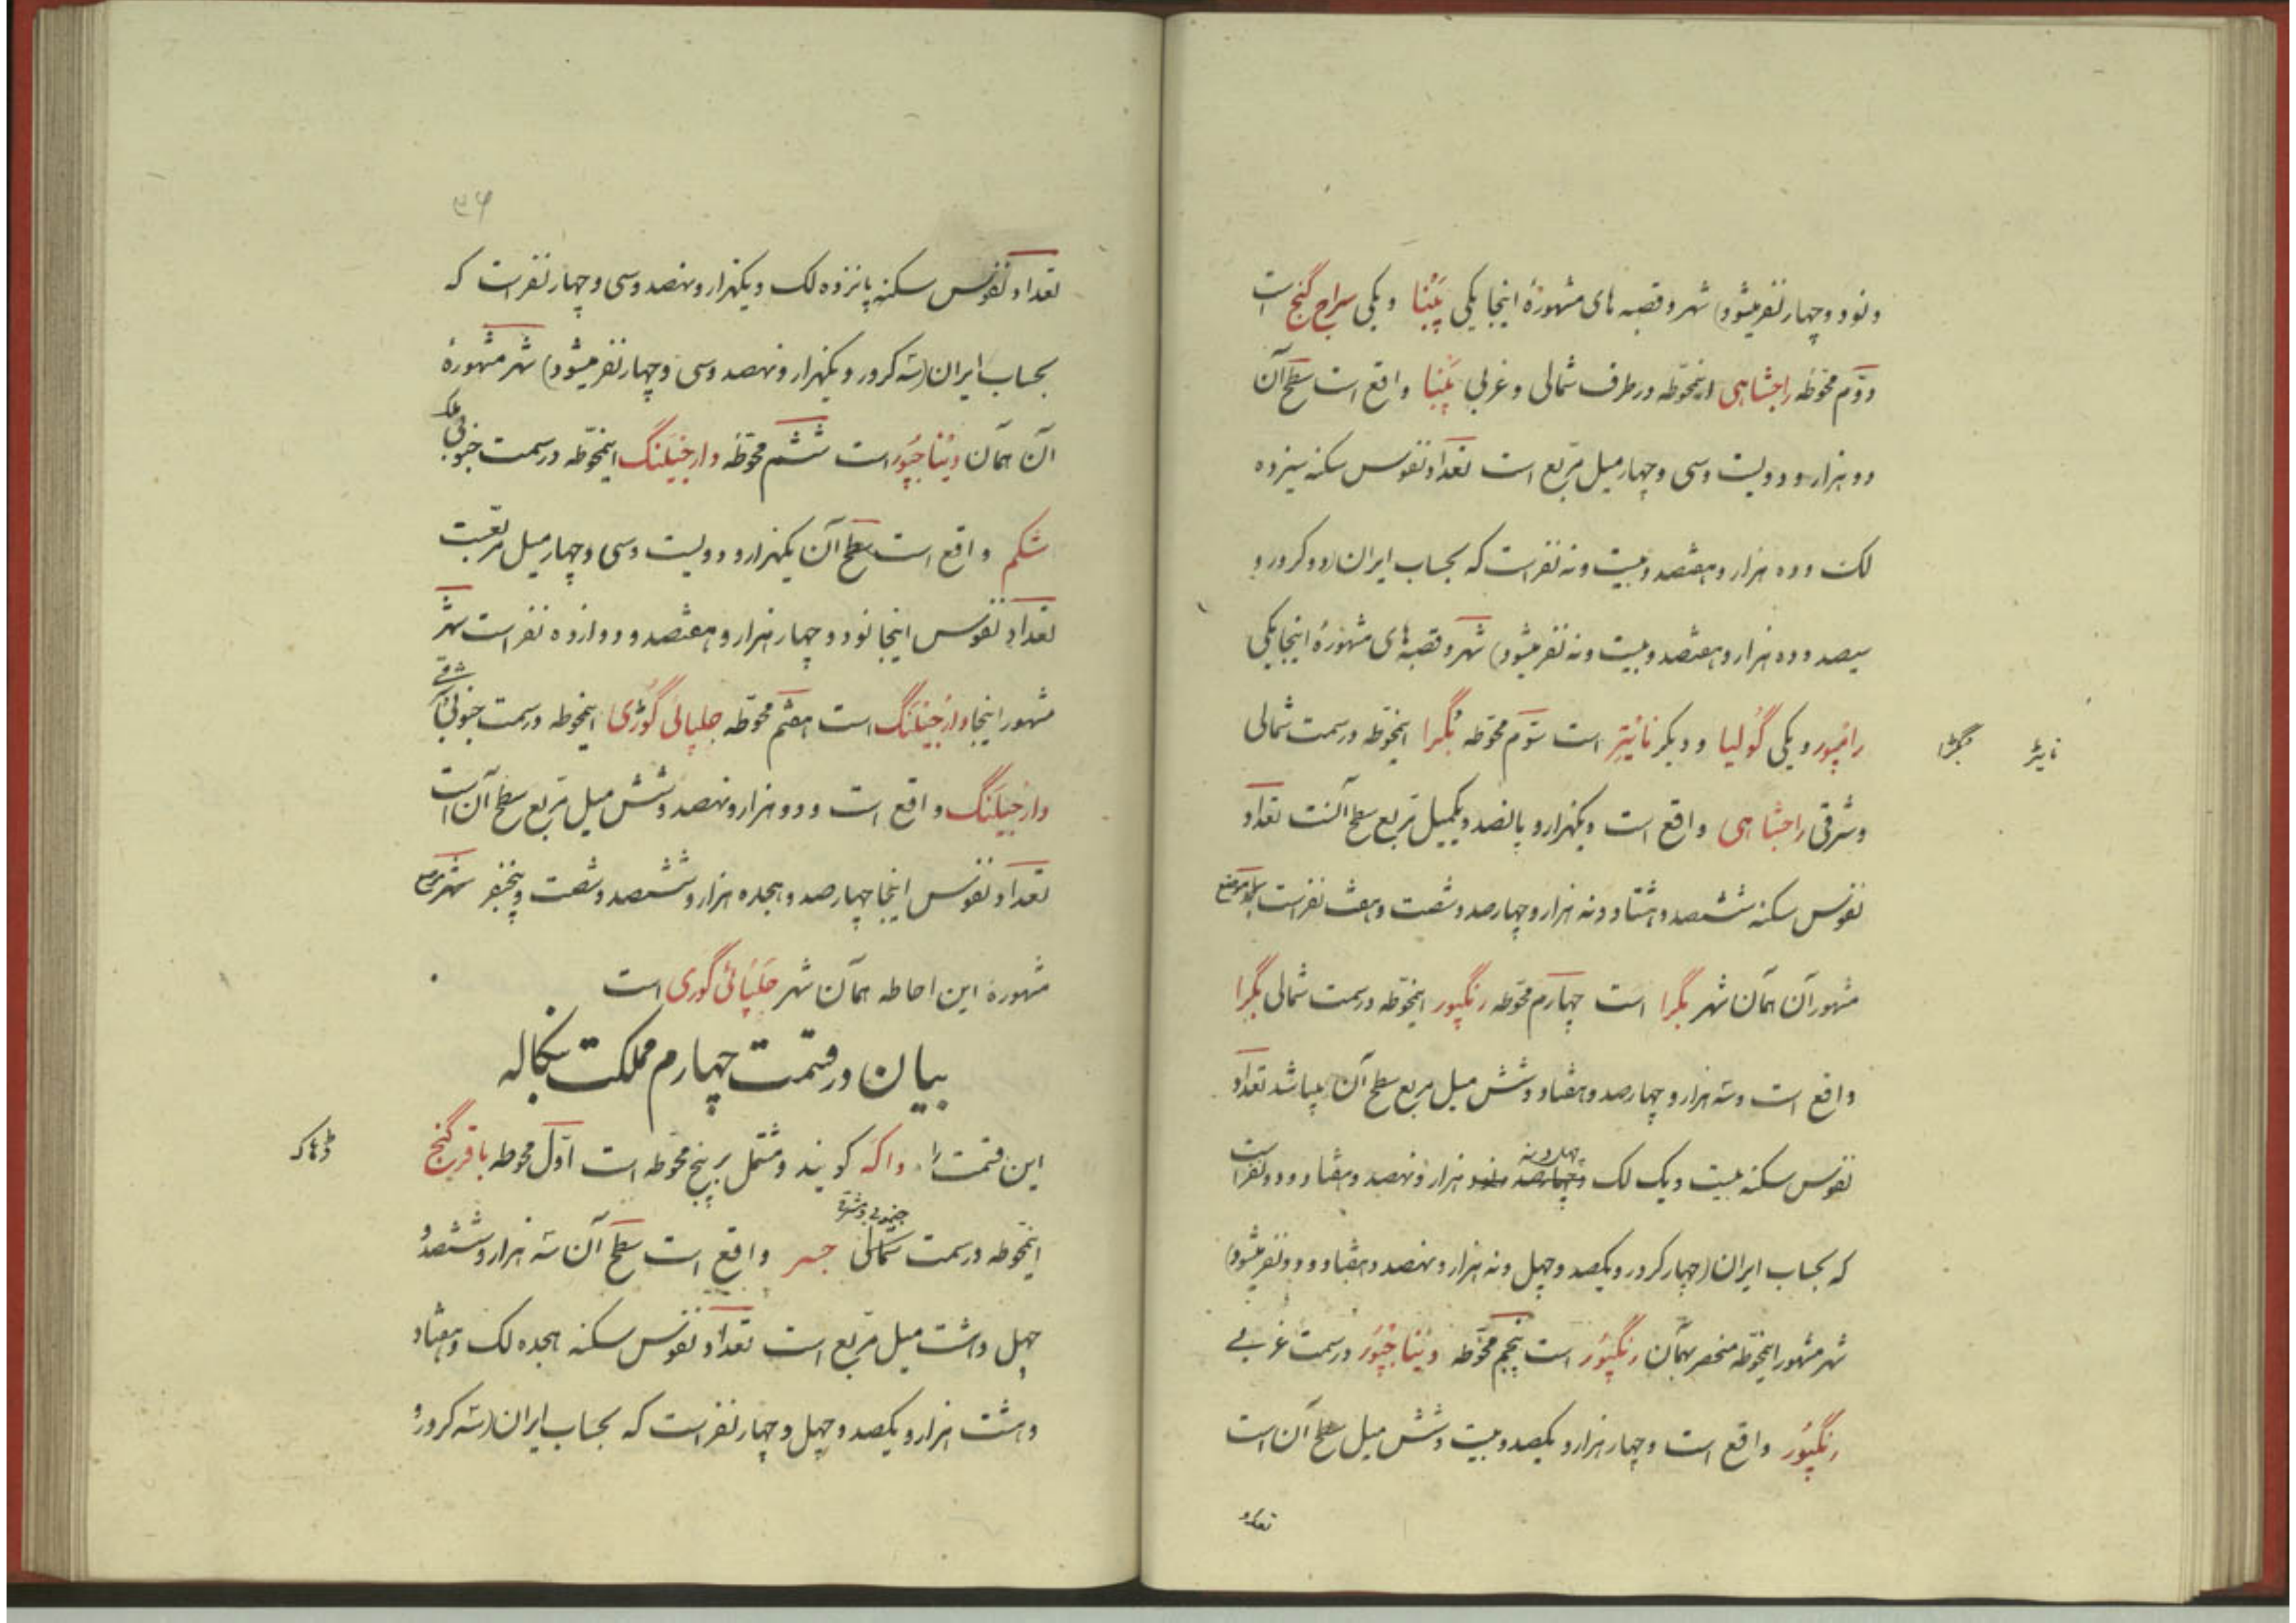 ونود وچهار نفر میشود) شهر و قصبه های مشهورهٔ اینجا یکی پَبْنا ویکی سراج گنج است
دوّم محوّطه راجشاهی اینمحوّطه در طرف شمالی وغربی پَبْنا واقع است سطح آن
دو هزار و دویست وسی وچهار میل مربّع است تعداد نفوس سکنه سیزده
لک وده هزار و هفتصد وبیست ونه نفر است که بحساب ایران (دو کرور و
سیصد وده هزار و هفتصد وبیست ونه نفر میشود) شهر وقصبه های مشهورهٔ اینجا یکی
رامپور ویکی گولیا ودیگر ناتیتر است سوّم محوّطه بگرا اینمحوّطه در سمت شمالی
نایٹر
بگڑا
وشرقی راجشاهی واقع است ویکهزار و پانصد ویکمیل مربع سطح آنست تعداد
نفوس سکنه ششصد وهشتاد ونه هزار و چهارصد وشصت وهفت نفر است
مشهور آن همان شهر بگرا است چهارم محوّطه رنگپور اینمحوّطه در سمت شمالی بگرا
واقع است وسه هزار و چهارصد وهفتاد وشش میل مربع سطح آن میباشد تعداد
نفوس سکنه بیست ویک لک وچهل ونه هزار و نهصد وهفتاد ودو نفر است
که بحساب ایران (چهار کرور ویکصد وچهل ونه هزار و نهصد وهفتاد ودو نفر میشود)
شهر مشهور اینمحوّطه منحصر بهمان رنگپور است پنجم محوّطه دیناجپور در سمت غربی
رنگپور واقع است وچهار هزار و یکصد وبیست وشش میل سطح آن است
تعداد
۳۶
تعداد نفوس سکنه پانزده لک ویکهزار ونهصد وسی وچهار نفر است که
بحساب ایران (سه کرور ویکهزار ونهصد وسی وچهار نفر میشود) شهر مشهورهٔ
آن همان دیناجپور است ششم محوّطه دارجیلنگ اینمحوّطه در سمت جنوبی ملک
سکم واقع است سطح آن یکهزار و دویست وسی وچهار میل مربعست
تعداد نفوس اینجا نود وچهار هزار و هفتصد ودوازده نفر است شهر
مشهور اینجا دارجیلنگ است هفتم محوّطه جلپائی گوڑی اینمحوطه در سمت جنوبی شرقی
دارجیلنگ واقع است ودو هزار ونهصد وشش میل مربع سطح آن است
تعداد نفوس اینجا چهارصد وهجده هزار و ششصد وشصت وپنجنفر شهر موضع
مشهوره این احاطه همان شهر جلپائی گوری است
بیان در قسمت چهارم مملکت بنگاله
این قسمت را داکه گویند ومشتمل بر پنج محوّطه است اوّل محوطه باقر گنج
ڈھاکہ
اینمحوطه در سمت جنوبی وشرقی جسر واقع است سطح آن سه هزار و ششصد و
چهل وهشت میل مربّع است تعداد نفوس سکنه هجده لک وهفتاد
وهشت هزار و یکصد وچهل وچهار نفر است که بحساب ایران (سه کرور و